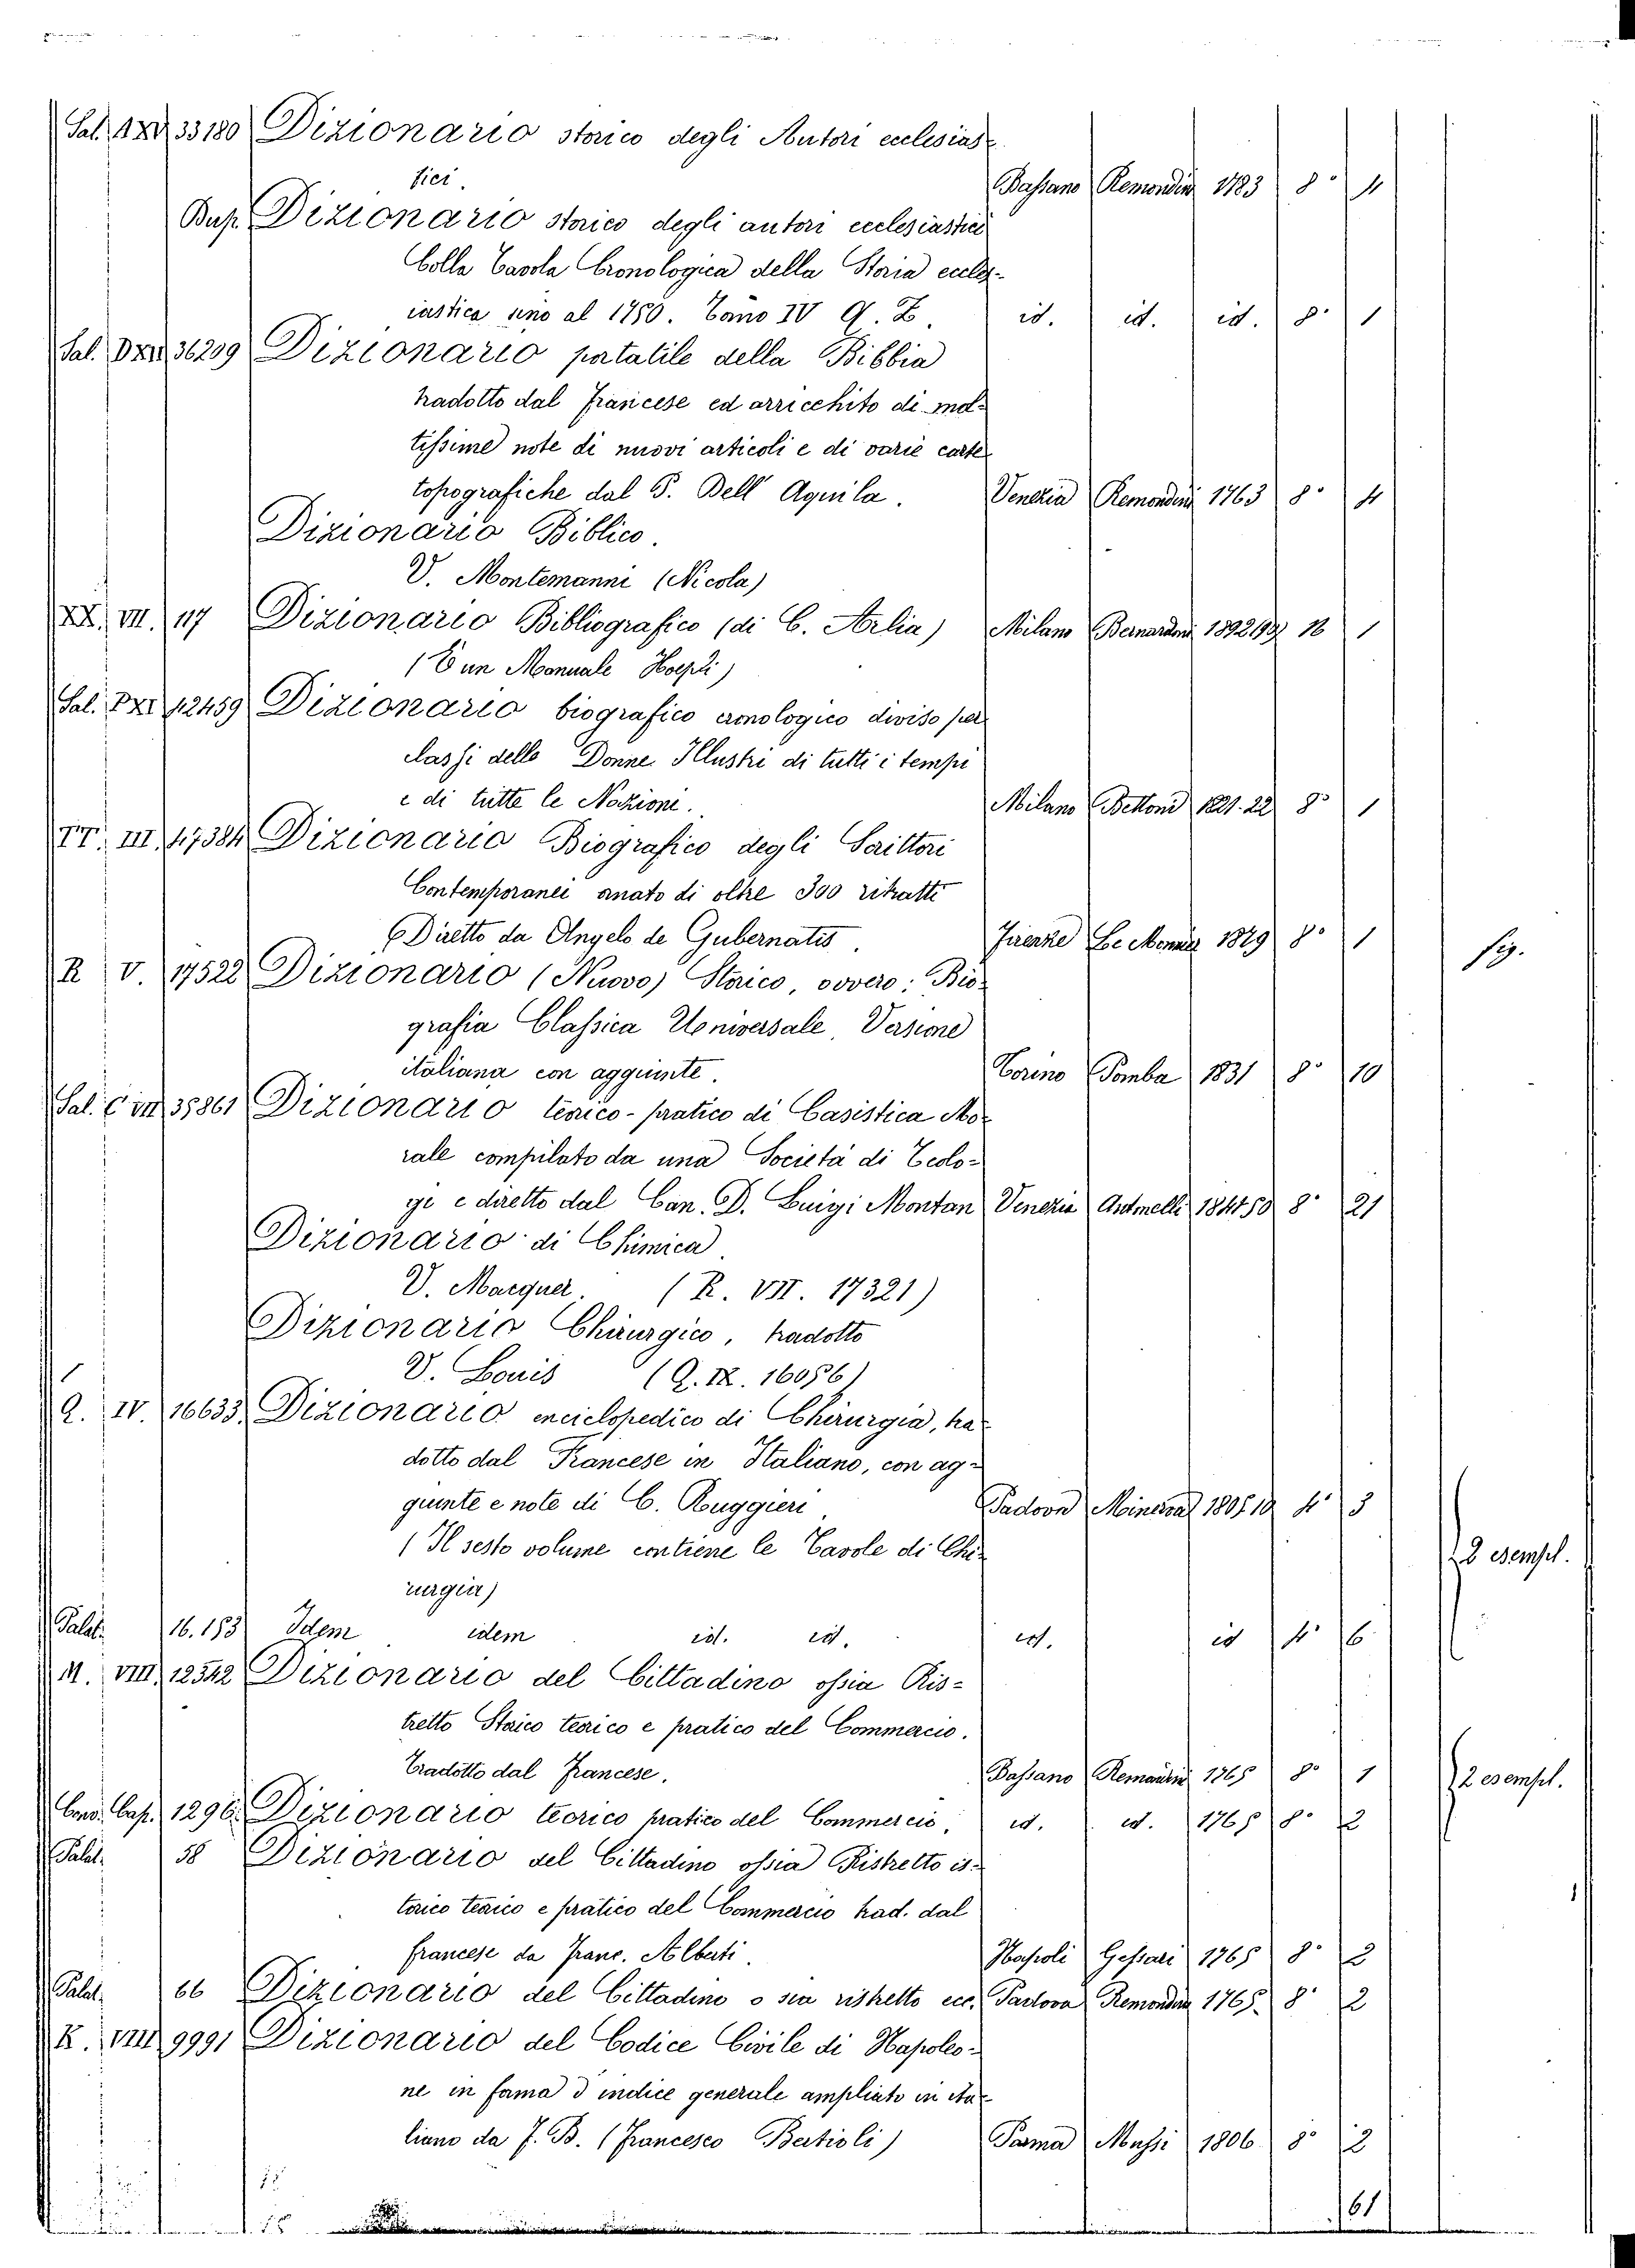 Sal. 33180 Dizionario storico degli Autori ecclesias-
tici. Bassano Remondini 1783 8° 4
Bup. Dizionario storico degli autori ecclesiastici
Colla Tavola Cronologica della Storia eccles-
iastica sino al 1780. Tomo IV Q. Z. id. id. id. 8° 1
Sal. 36209 Dizionario portatile della Bibbia
tradotto dal francese ed arricchito di mol-
tissime note di nuovi articoli e di varie carte
topografiche dal P. Dell' Aquila. Venezia Remondini 1763 8° 4
Dizionario Biblico.
V. Montemanni (Nicola)
XX. VII. 117 Dizionario Bibliografico (di C. Arlia) Milano Bernardoni 1892 1
(È un Manuale Hoepli)
Sal. 42459 Dizionario biografico cronologico diviso per
classi delle Donne Illustri di tutti i tempi
e di tutte le Nazioni. Milano Bettoni 1821.22 8° 1
TT. III. 47384 Dizionario Biografico degli Scrittori
Contemporanei ornato di oltre 300 ritratti
Diretto da Angelo de Gubernatis. Firenze Le Monnier 1879 8° 1 fig.
R V. 17522 Dizionario (Nuovo) Storico, ovvero: Bio-
grafia Classica Universale, Versione
italiana con aggiunte. Torino Pomba 1831 8° 10
Sal. C III 35861 Dizionario teorico-pratico di Casistica Mo-
rale compilato da una Società di Teolo-
gi e diretto dal Can. D. Luigi Montan Venezia Antonelli 8° 21
Dizionario di Chimica
V. Macquer. (R. VII. 17321)
Dizionario Chirurgico, tradotto
V. Louis (Q. IX. 16056)
Q. IV. 16633 Dizionario enciclopedico di Chirurgia, tra-
dotto dal Francese in Italiano, con ag-
giunte e note di C. Ruggieri Padova Minerva 4° 3
(Il sesto volume contiene le Tavole di Chi- 2 esempl.
rurgia)
Palat. 16.153 Idem idem id. id. id. id 4° 6
M. VIII. 12542 Dizionario del Cittadino ossia Ris-
tretto Storico teorico e pratico del Commercio.
Tradotto dal francese. Bassano Remondini 1765 8° 1 2 esempl.
Cap. 1296 Dizionario teorico pratico del Commercio, id. id. 1765 8° 2
Palat. 58 Dizionario del Cittadino ossia Ristretto is-
torico teorico e pratico del Commercio trad. dal
francese da Franc. Alberti. Napoli Gessari 1765 8° 2
Palat. 66 Dizionario del Cittadino o sia ristretto ecc. Padova Remondini 1765. 8° 2
K. VIII 9991 Dizionario del Codice Civile di Napoleo-
ne in forma d'indice generale ampliato in Ita-
liano da F. B. (Francesco Bertioli) Parma Mussi 1806 8° 2
61